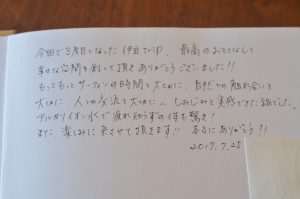 今回で3度目となった伊豆の旅、最高のおもてなしと
幸せな空間を創って頂きありがとうございました!!
もっともっとサーフィンの時間を大切に、自然との触れ合いを
大切に、人との交流を大切に… しみじみと実感できた旅でした。
アルカリイオン水で疲れ知らずの体も驚き!
また、楽しみに来させて頂きます!! 本当にありがとう!!
2017.7.25